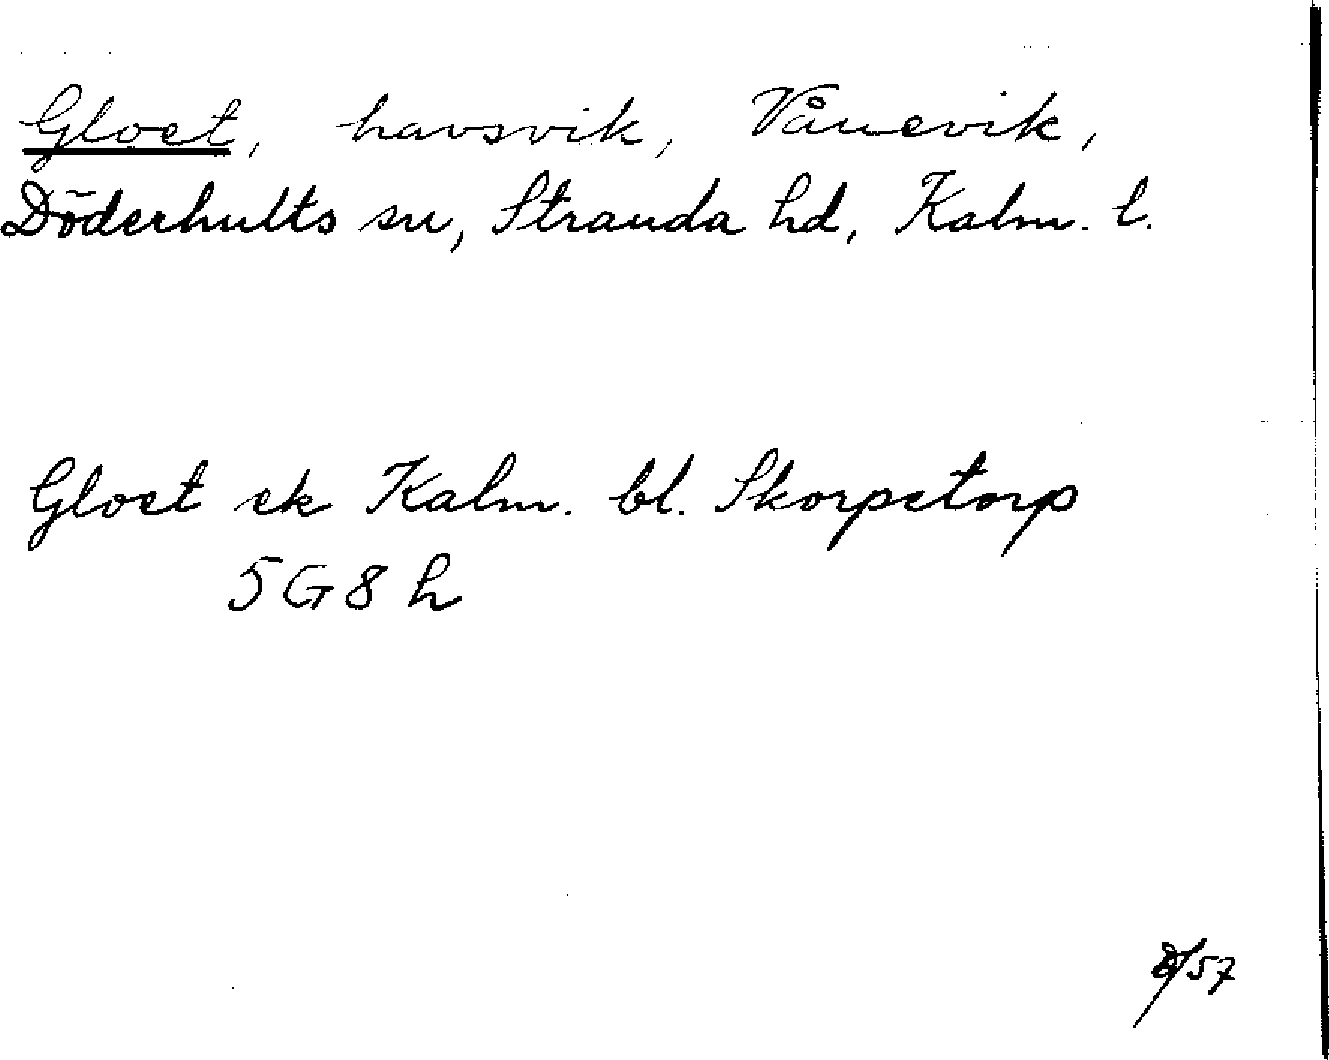 Gloet, havsvik, Vånevik,
Döderhults sn, Stranda hd, Kalm. l.
Gloet ek Kalm. bl. Skorpetorp
5G8h
/57